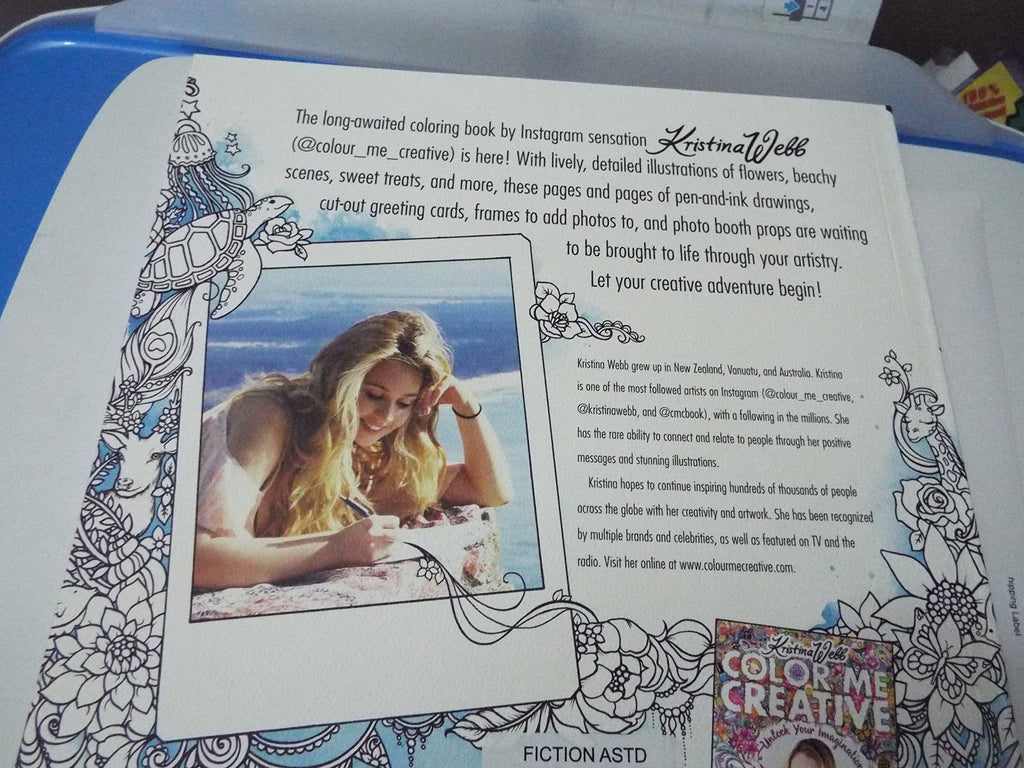 The long-awaited coloring book by Instagram sensation Kristina Webb
(@colour_me_creative) is here! With lively, detailed illustrations of flowers, beachy
scenes, sweet treats, and more, these pages and pages of pen-and-ink drawings,
cut-out greeting cards, frames to add photos to, and photo booth props are waiting
to be brought to life through your artistry.
Let your creative adventure begin!
Kristina Webb grew up in New Zealand, Vanuatu, and Australia. Kristina
is one of the most followed artists on Instagram (@colour_me_creative,
@kristinawebb, and @cmcbook), with a following in the millions. She
has the rare ability to connect and relate to people through her positive
messages and stunning illustrations.
Kristina hopes to continue inspiring hundreds of thousands of people
across the globe with her creativity and artwork. She has been recognized
by multiple brands and celebrities, as well as featured on TV and the
radio. Visit her online at www.colourmecreative.com.
Kristina Webb
COLOR ME
CREATIVE
Unlock Your Imagination
FICTION ASTD
hipping Label
100%